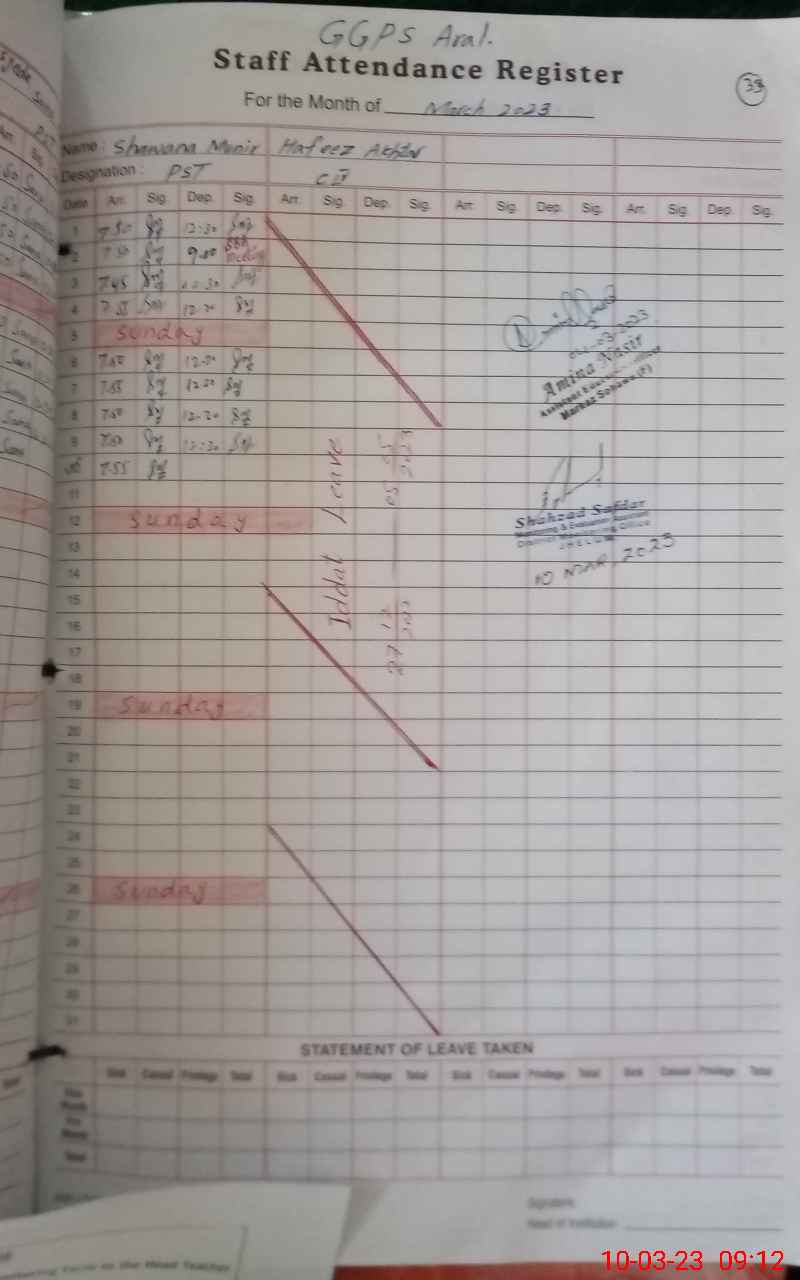 GGPS Aral.
Staff Attendance Register
39
For the Month of March 2023
Name : Shawana Munir Hafeez Akhtar
Designation : PST C IV
Date Arr. Sig. Dep. Sig. Arr. Sig. Dep. Sig. Arr. Sig. Dep. Sig. Arr. Sig. Dep. Sig.
1 7.50 12:30
2 7.50 9.00 meeting
3 7.45 12.30
4 7.55 12.30
5 Sunday
6 7.50 12.30
7 7.55 12.30
8 7.50 12.30
9 7.50 12:30
10 7.55
11
12 Sunday
13
14
15
16
17
18
19 Sunday
20
21
22
23
24
25
26 Sunday
27
28
29
30
31
Iddat Leave
27 12 2022 — 05 05 2023
04-03-2023
Amina Nasir
Assistant Education Officer
Markaz Sohawa (F)
Shahzad Safdar
Monitoring & Evaluation Assistant
District Monitoring Office
JHELUM
10 MAR 2023
STATEMENT OF LEAVE TAKEN
Sick Casual Privilege Total Sick Casual Privilege Total Sick Casual Privilege Total Sick Casual Privilege Total
Total
Signature
Head of Institution
to the Head Teacher
10-03-23 09:12